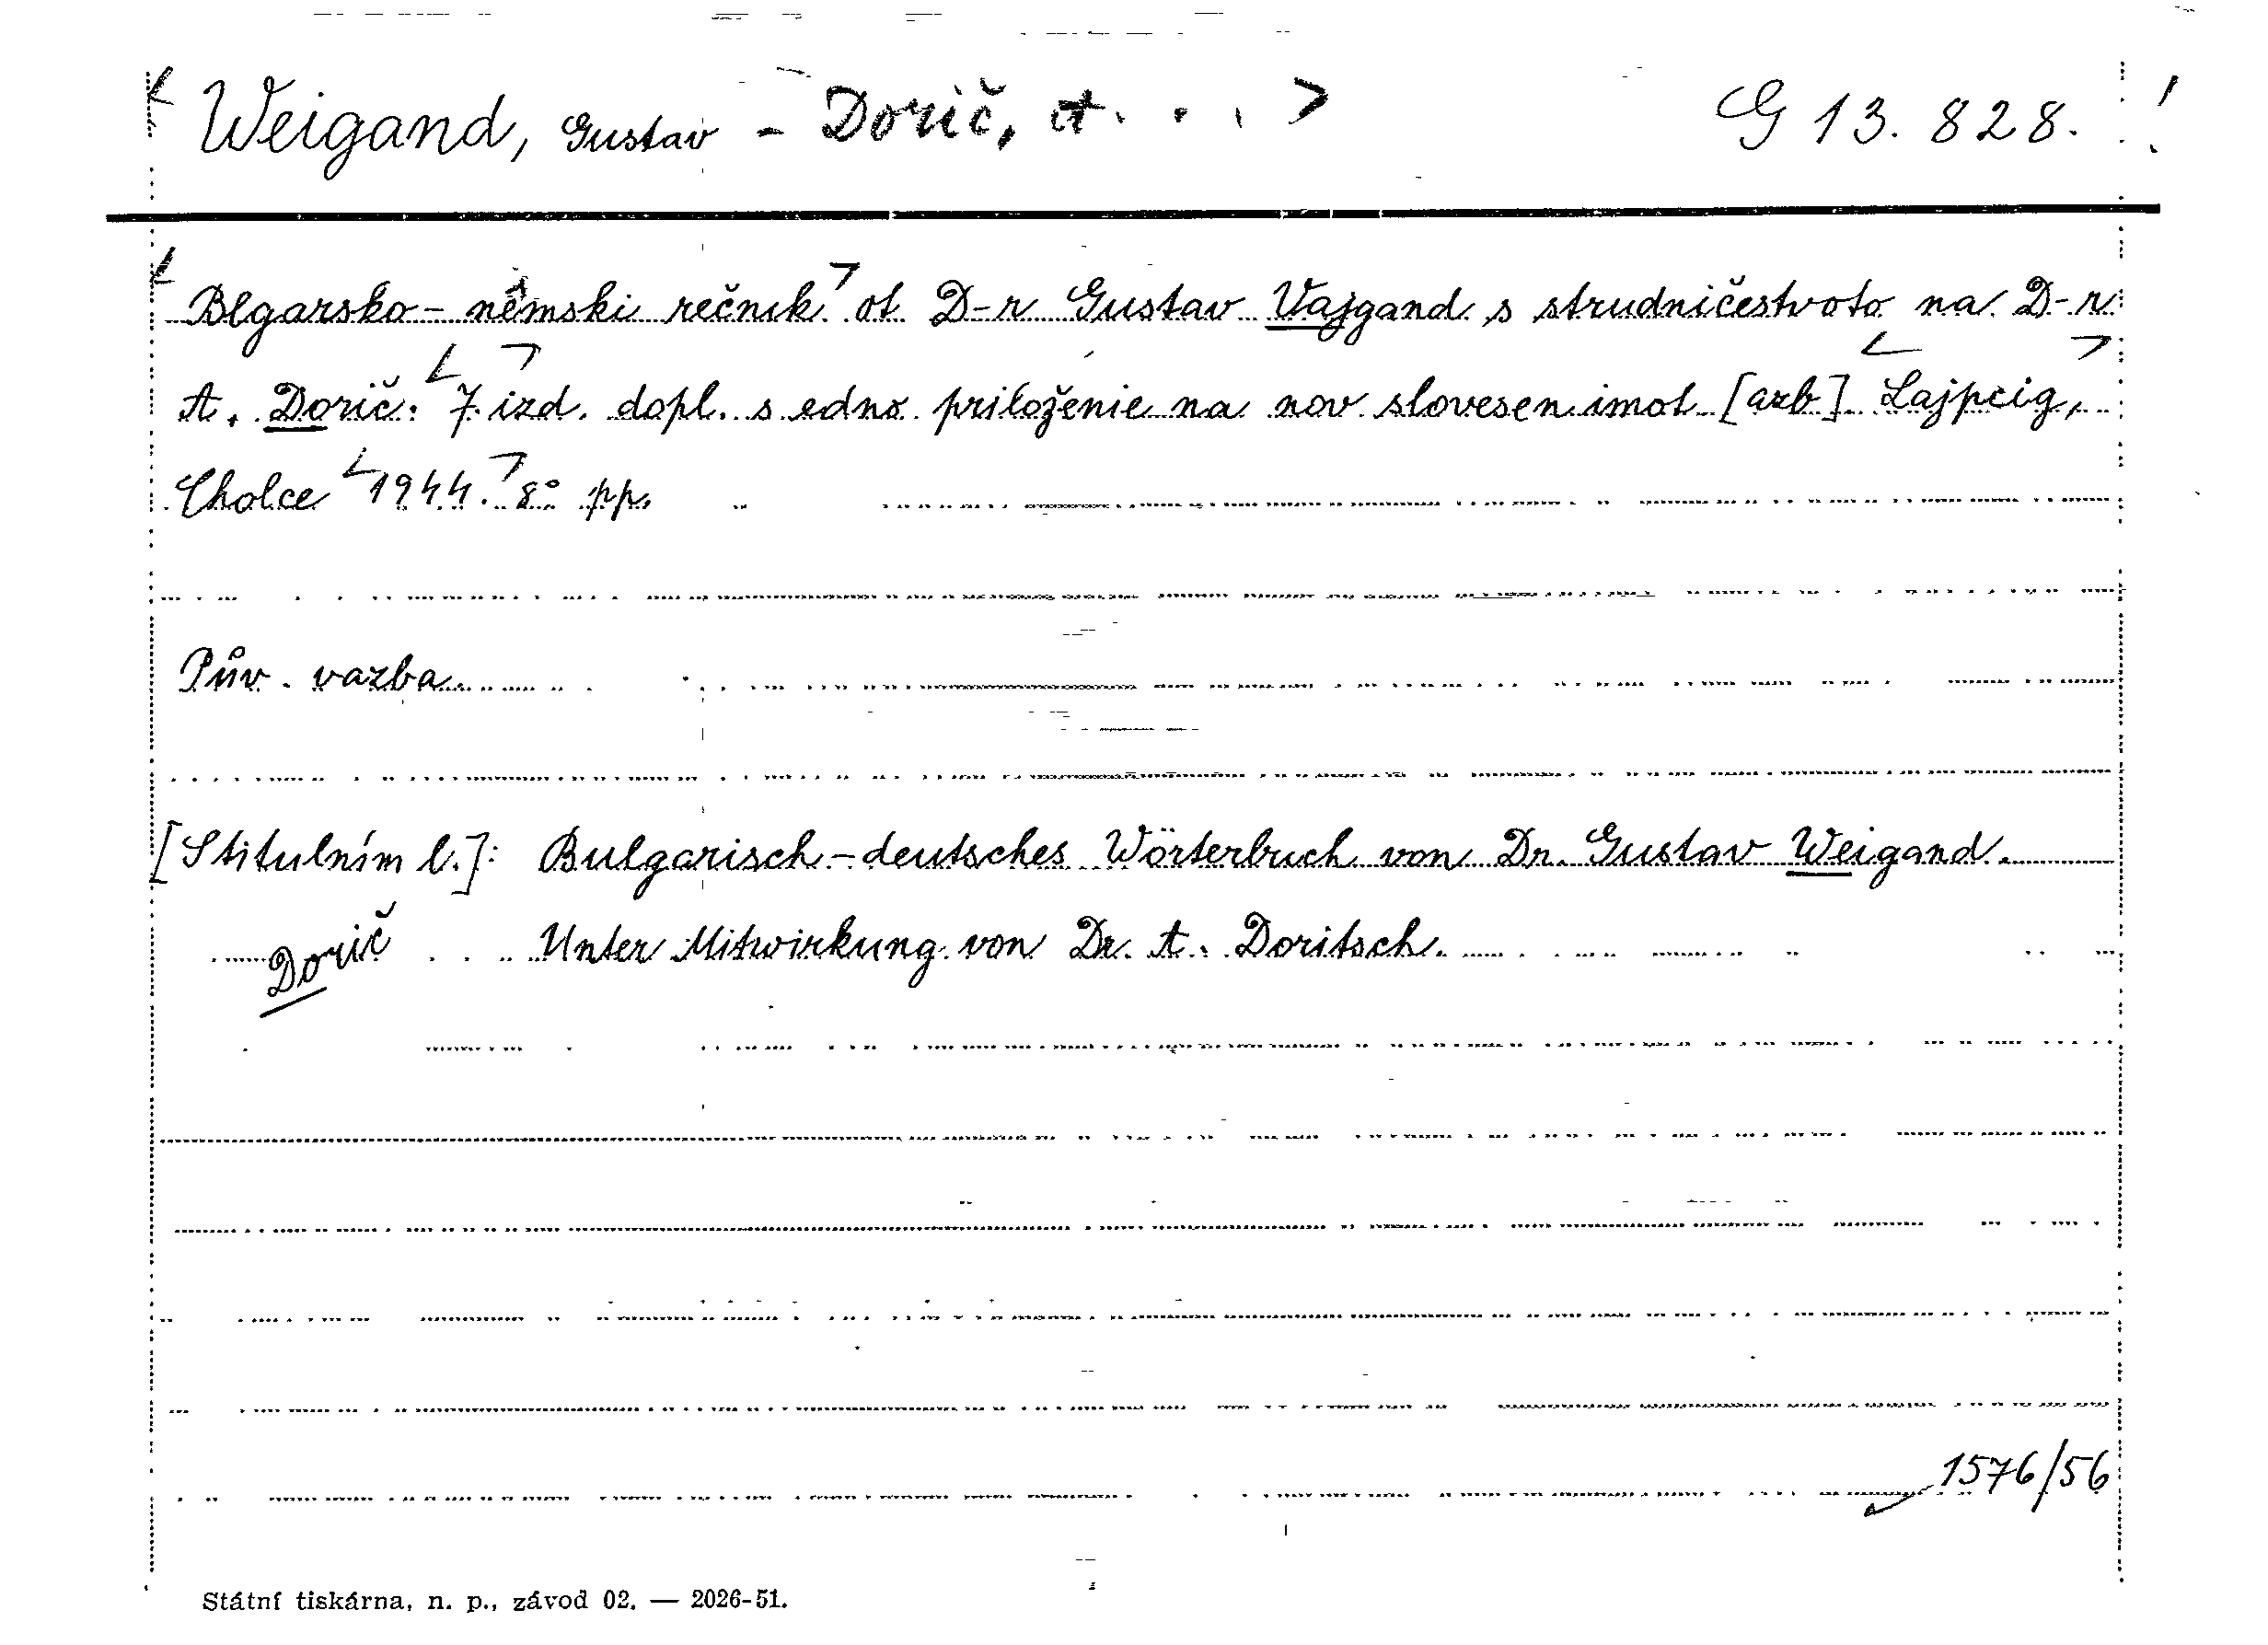 Weigand, Gustav - Dorič, A. . . G 13.828. !
Blgarsko-němski rečnik ot D-r Gustav Vajgand s strudničestvoto na D-r
A. Dorič. 7. izd. dopl. s edno priloženie na nov slovesen imot [azb] Lajpcig,
Cholce 1944. 8° pp.
Pův. vazba.
[S titulním l.]: Bulgarisch-deutsches Wörterbuch von Dr. Gustav Weigand.
Dorič Unter Mitwirkung von Dr. A. Doritsch.
1576/56
Státní tiskárna, n. p., závod 02. — 2026-51.